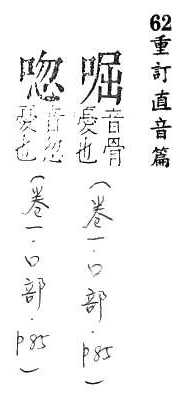 62 重訂直音篇
啒 音骨憂也(卷一.口部.p85)
唿 音忽憂也(卷一.口部.p85)